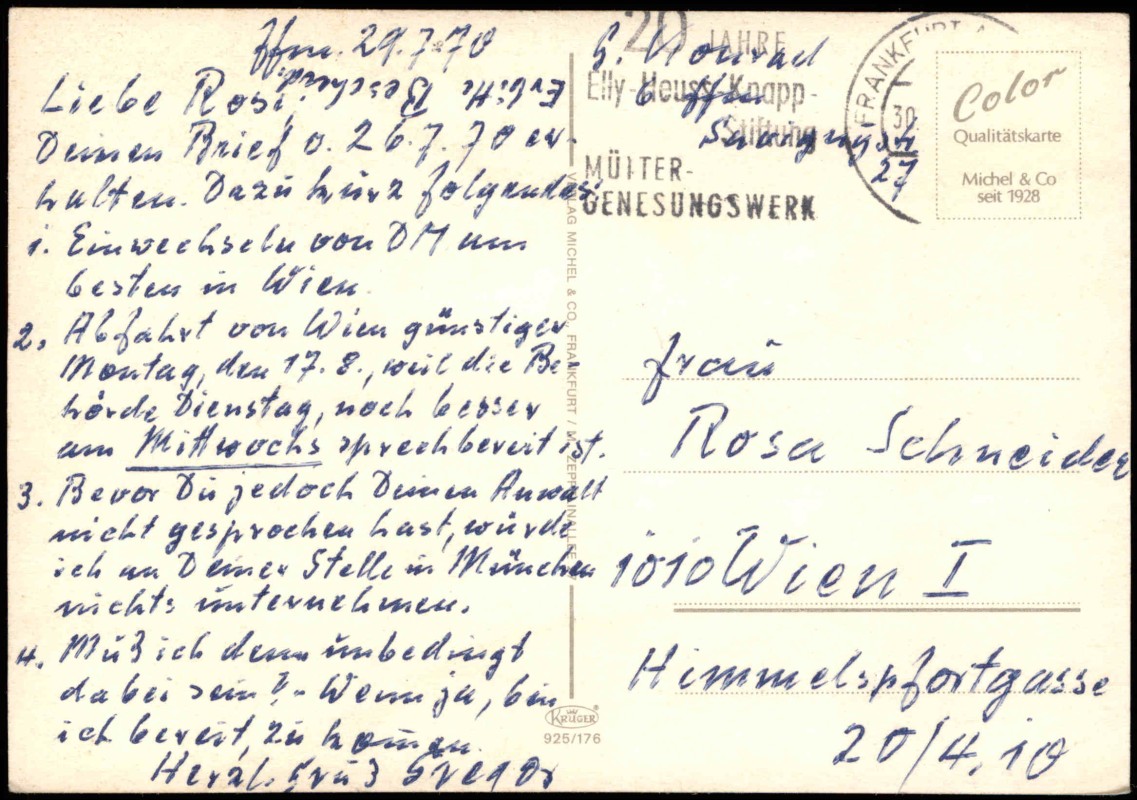 Ffm. 29.7.70
Liebe Rosi!
Deinen Brief v. 26.7.70 er-
halten. Dazu kurz folgendes:
1. Einwechseln von DM am
besten in Wien.
2. Abfahrt von Wien günstiger
Montag, den 17.8., weil die Be
hörde Dienstag, noch besser
am Mittwochs sprechbereit ist.
3. Bevor Du jedoch Deinen Anwalt
nicht gesprochen hast, würde
ich an Deiner Stelle in München
nichts unternehmen.
4. Muß ich denn unbedingt
dabei sein? - Wenn ja, bin
ich bereit, zu kommen.
Herzl. Gruß Gregor
VERLAG MICHEL & CO., FRANKFURT / M.
KRÜGER
925/176
G. Konrad
6 Ffm
27
20 JAHRE
Elly-Heuss-Knapp-
Stiftung
MÜTTER-
GENESUNGSWERK
FRANKFURT
30
Color
Qualitätskarte
Michel & Co
seit 1928
Frau
Rosa Schneider
1010 Wien I
Himmelspfortgasse
20/4.10